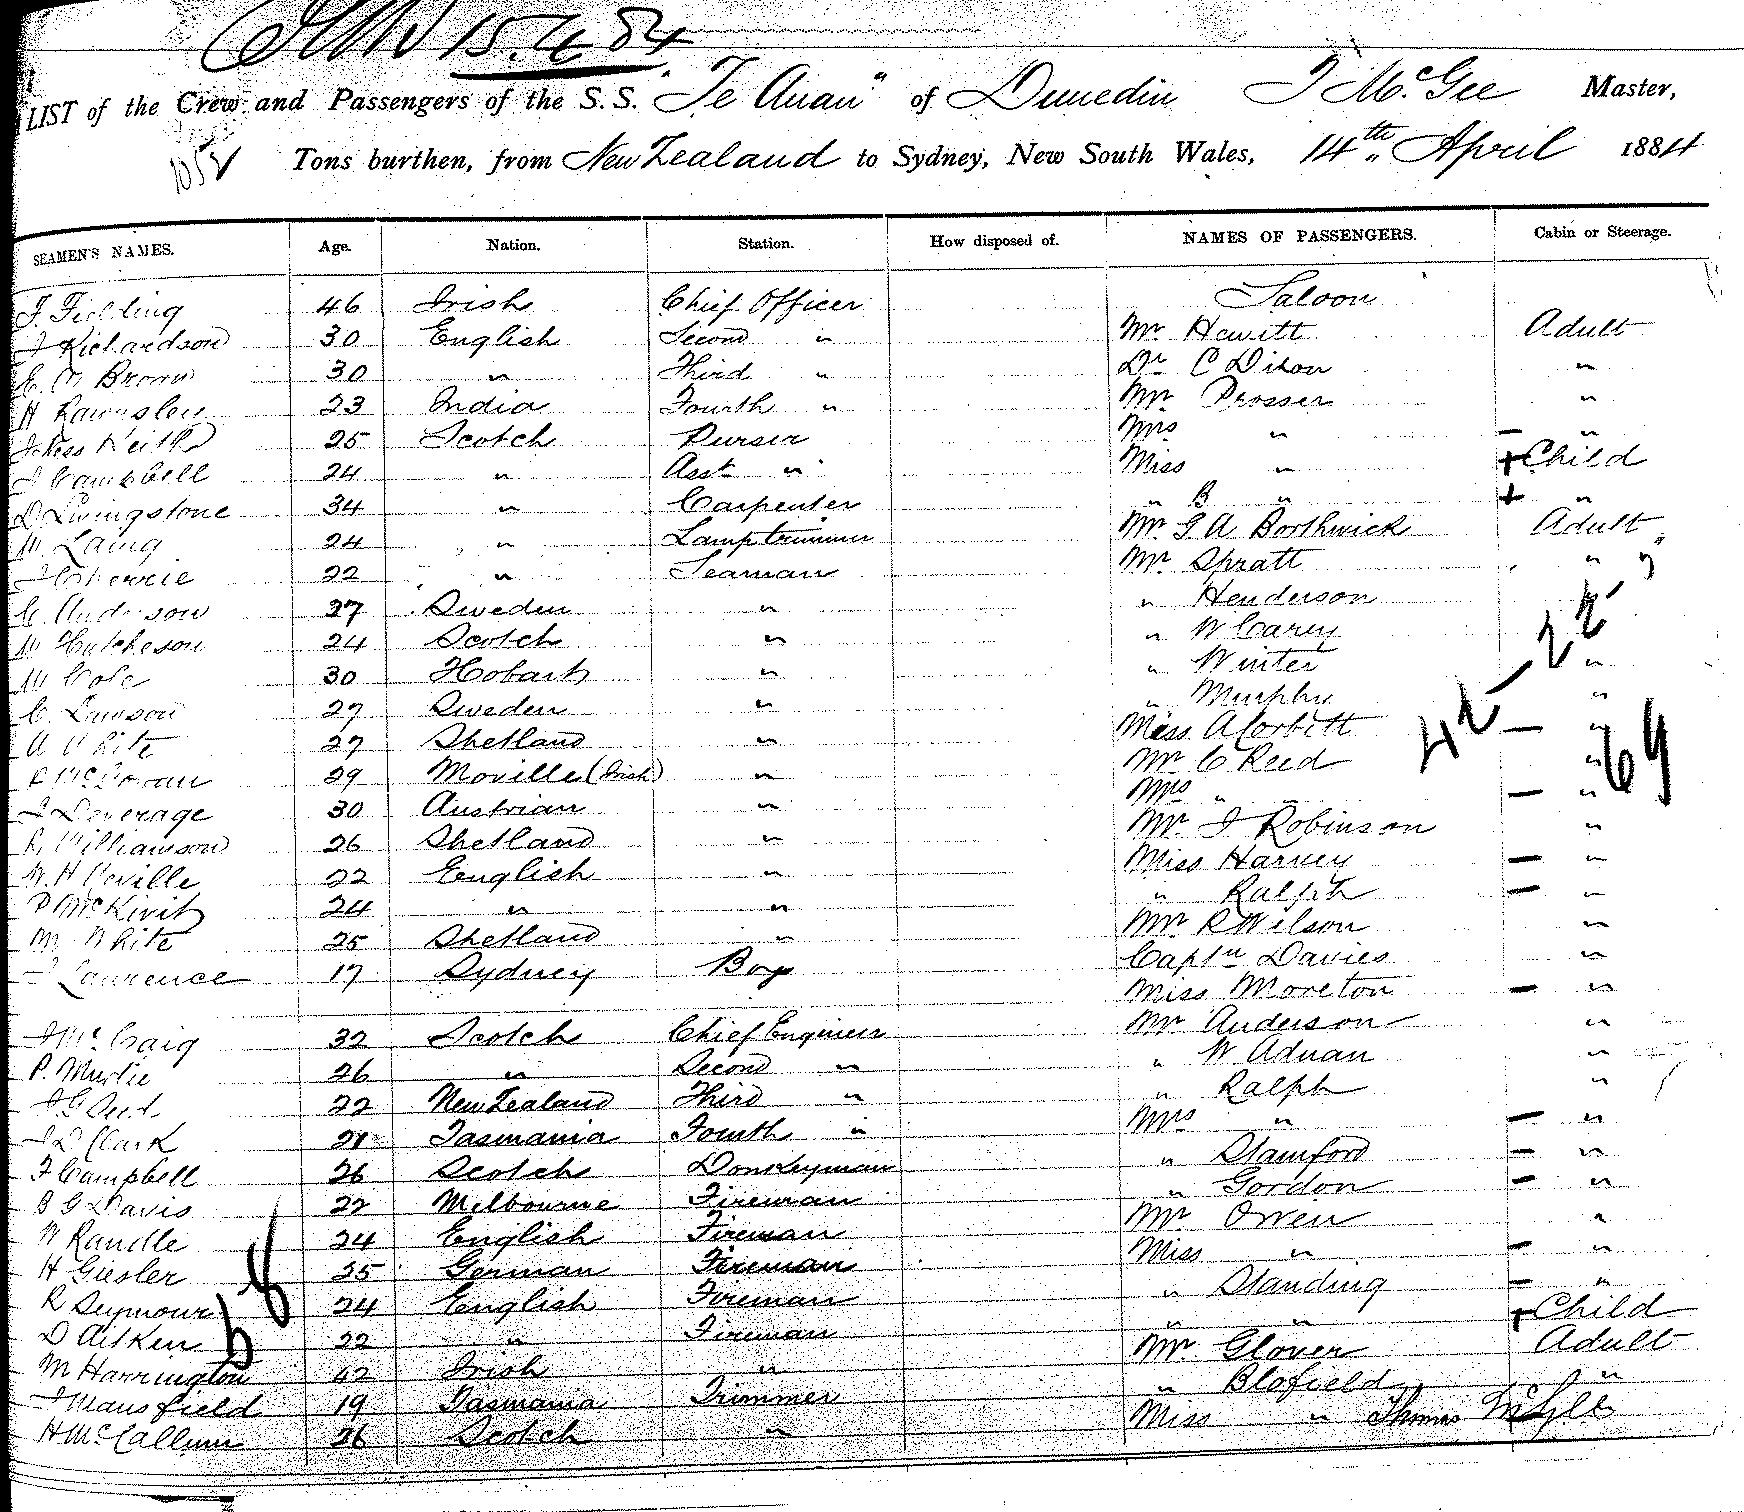 15.4.84
LIST of the Crew and Passengers of the S.S. "Te Anau" of Dunedin T McGee Master,
1052 Tons burthen, from New Zealand to Sydney, New South Wales, 14th April 1884
SEAMEN'S NAMES. Age. Nation. Station. How disposed of. NAMES OF PASSENGERS. Cabin or Steerage.
J. Fielding 46 Irish Chief Officer Saloon
J Richardson 30 English Second " Mr Hewitt Adult
Brown 30 " Third " Dr C Dixon "
H Rawnsley 23 India Fourth " Mr Prosser "
Keith 25 Scotch Purser Mrs " — "
J Campbell 24 " Asst " Miss " + Child
D Livingstone 34 " Carpenter " B " + "
W. Laing 24 " Lamp trimmer Mr G A Borthwick Adult
22 " Seaman Mr Spratt "
C. Anderson 27 Sweden " " Henderson
W Hutcheson 24 Scotch " " W Carey
W Cole 30 Hobart " " Winter "
C. Lawson 27 Sweden " " Murphy "
A White 27 Shetland " Miss A Corbitt — "
29 Moville (Irish) " Mr C Reed "
J Deverage 30 Austrian " Mrs " — "
R Williamson 26 Shetland " Mr J Robinson "
W. H Neville 22 English " Miss Harvey — "
P McKivit 24 " " " Ralph — "
M. White 25 Shetland " Mr R Wilson "
J Lawrence 17 Sydney Boy Captn Davies "
Miss Moreton — "
J McCraig 32 Scotch Chief Engineer Mr Anderson "
P. Murtie 26 " Second " " W Adnan "
J G 22 New Zealand Third " " Ralph "
J D Clark 21 Tasmania Fourth " Mrs " — "
F Campbell 26 Scotch Donkeyman " Stamford — "
B G Davis 22 Melbourne Fireman " Gordon — "
W Randle 24 English Fireman Mr Owen "
H Giesler 25 German Fireman Miss " — "
R Seymour 24 English Fireman " Standing — "
D Aitken 22 " Fireman " " + Child
M Harrington 42 Irish " Mr Glover Adult
J Mansfield 19 Tasmania Trimmer " Blofield "
H McCallum 26 Scotch " Miss " Thomas
42 — 22
64